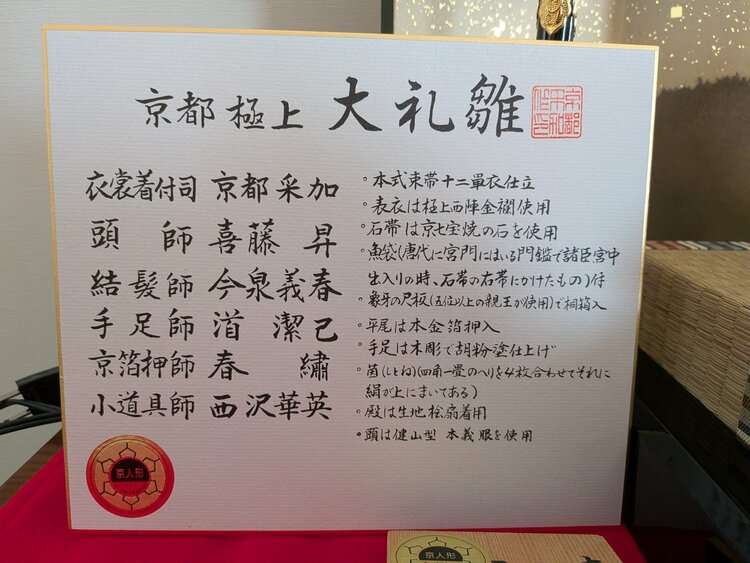 京都 極上 大礼雛
京都
采加
作印
衣裳着付司 京都采加
頭師 喜藤昇
結髪師 今泉義春
手足師 潔己
京箔押師 春繍
小道具師 西沢華英
京人形
。本式束帯十二単衣仕立
。表衣は極上西陣金襴使用
。石帯は京七宝焼の石を使用
。魚袋(唐代に宮門にはいる門鑑で諸臣宮中
出入りの時、石帯の右帯にかけたもの)付
。象牙の尺板(五位以上の親王が使用)で桐箱入
。平尾は本金箔押入
。手足は木彫で胡粉塗仕上げ
。茵(しとね)(四角一畳のへり)を4枚合わせてそれに
絹が上にまいてある)
。殿は生地桧扇着用
。頭は健山型 本義眼を使用
京人形